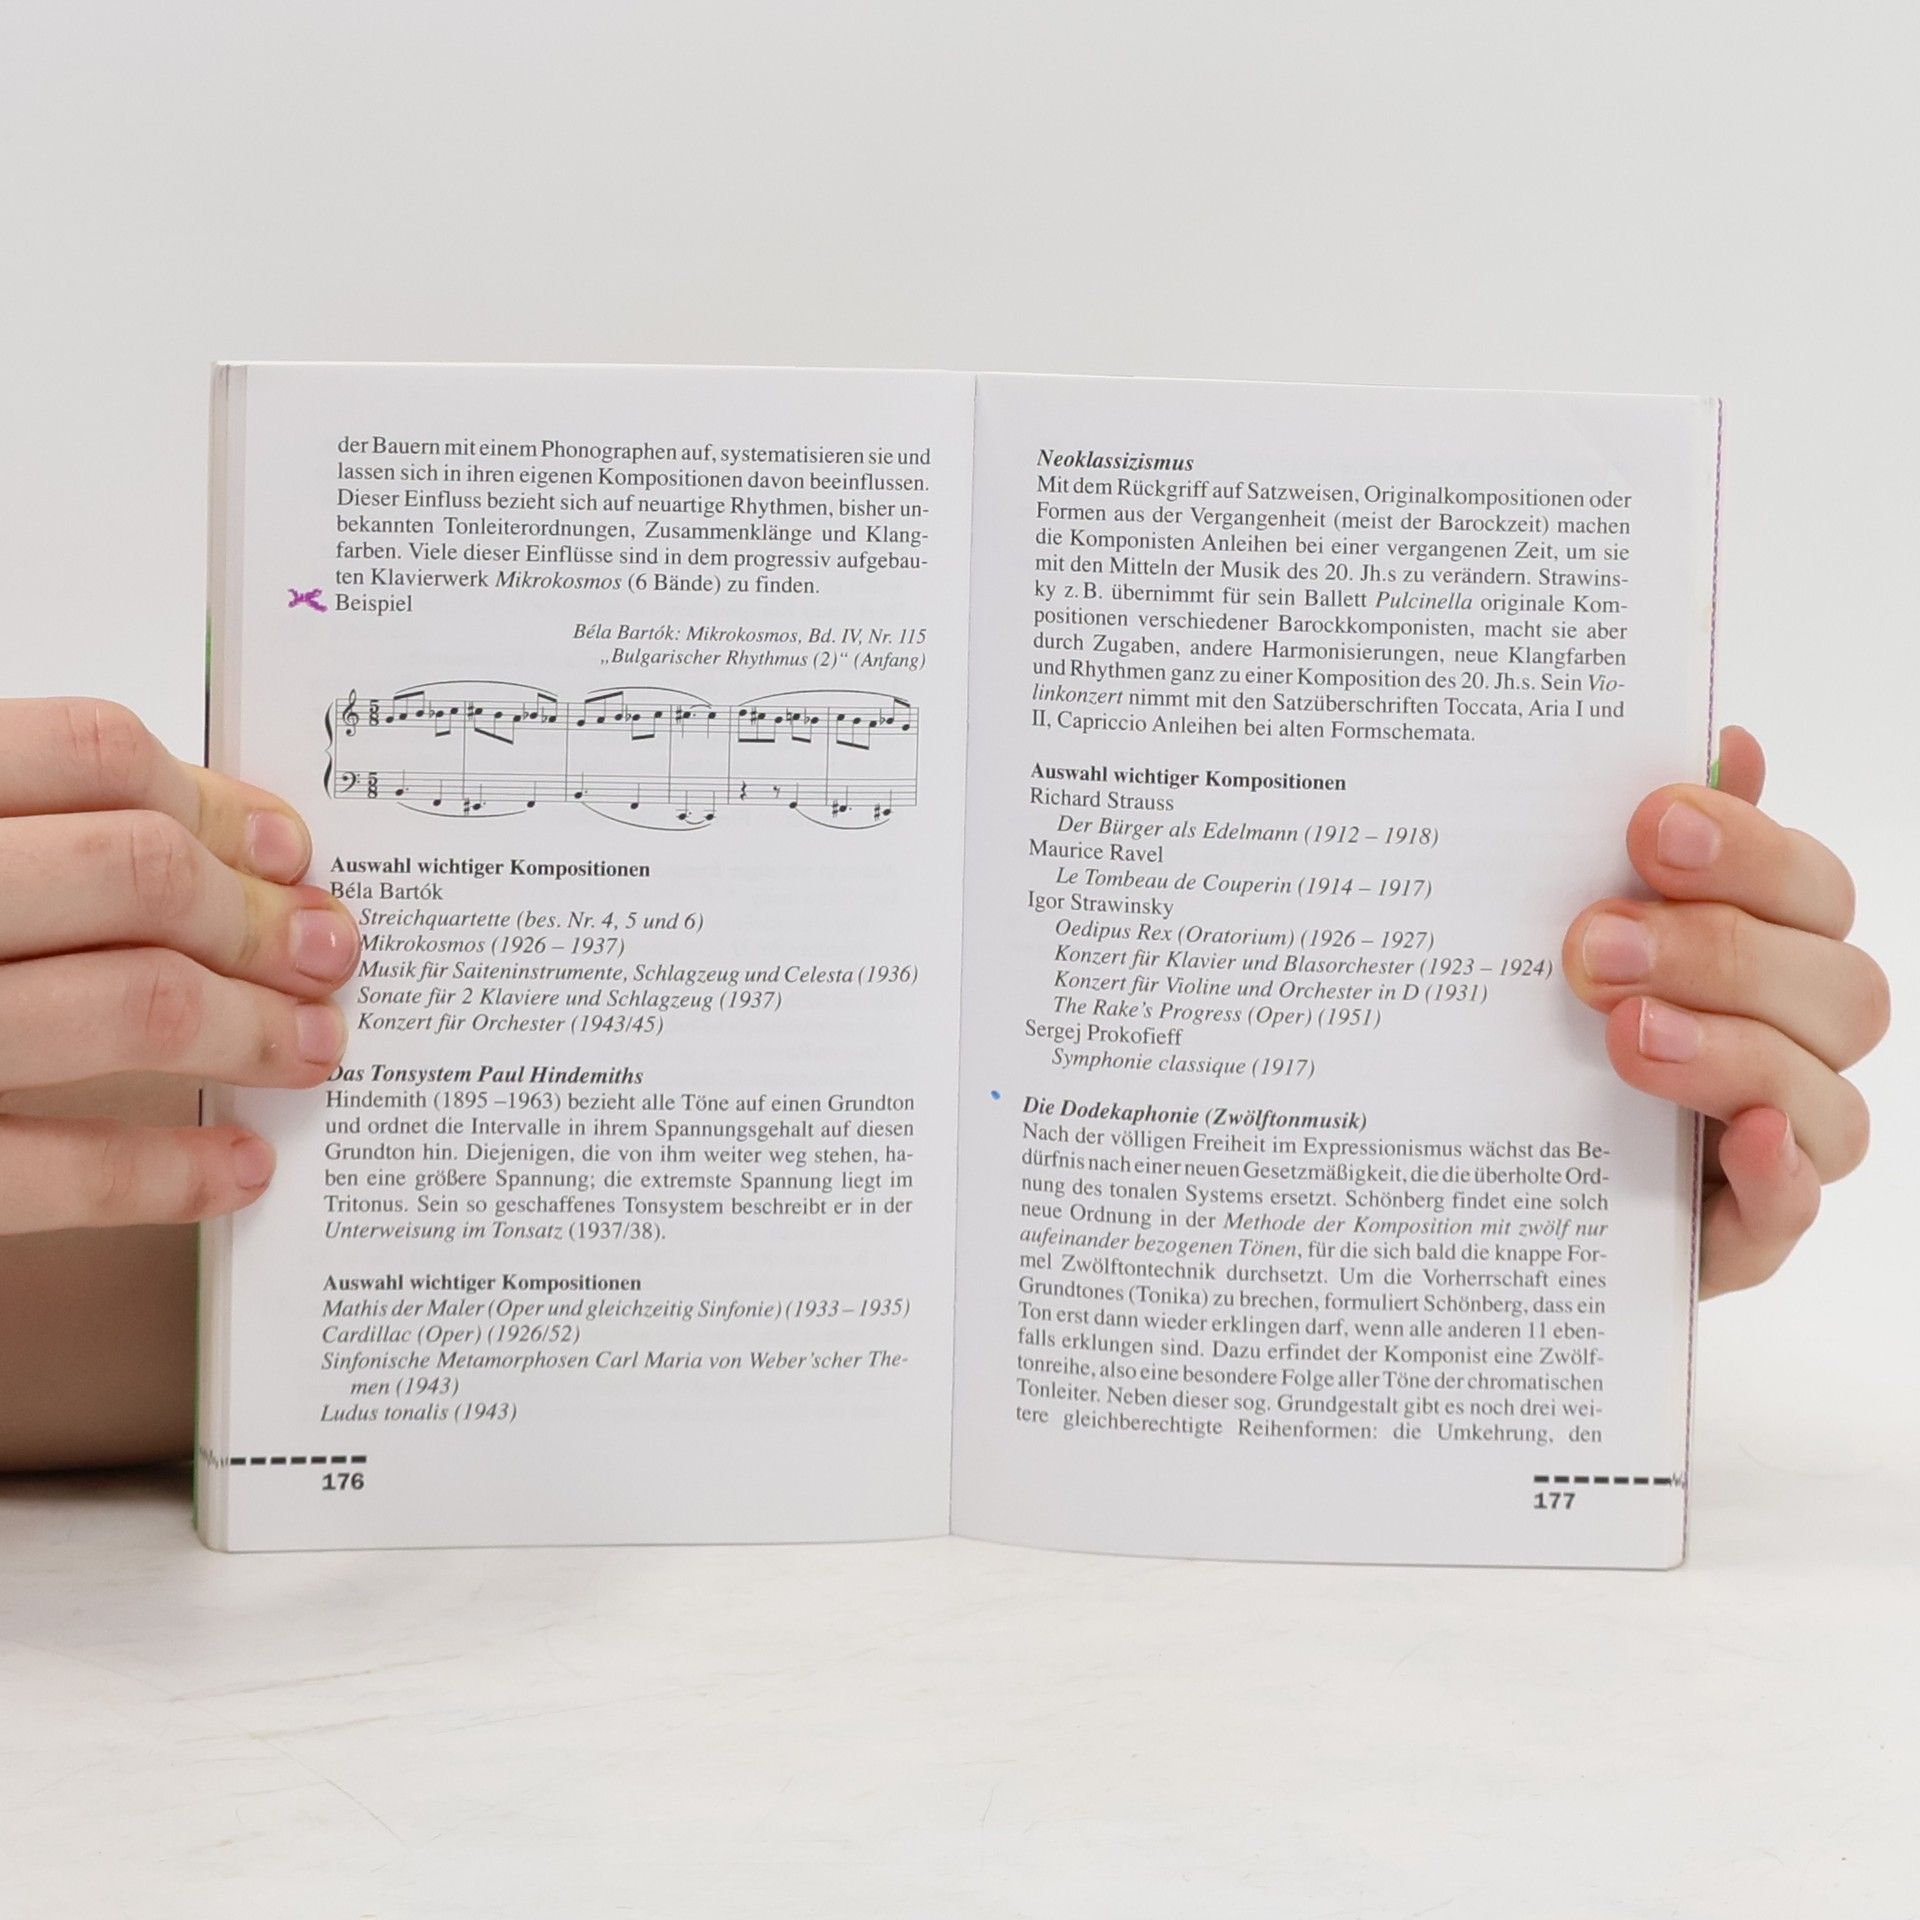 der Bauern mit einem Phonographen auf, systematisieren sie und
lassen sich in ihren eigenen Kompositionen davon beeinflussen.
Dieser Einfluss bezieht sich auf neuartige Rhythmen, bisher un-
bekannten Tonleiterordnungen, Zusammenklänge und Klang-
farben. Viele dieser Einflüsse sind in dem progressiv aufgebau-
ten Klavierwerk Mikrokosmos (6 Bände) zu finden.
Beispiel
Béla Bartók: Mikrokosmos, Bd. IV, Nr. 115
„Bulgarischer Rhythmus (2)“ (Anfang)
5
8
5
8
Auswahl wichtiger Kompositionen
Béla Bartók
Streichquartette (bes. Nr. 4, 5 und 6)
Mikrokosmos (1926 – 1937)
Musik für Saiteninstrumente, Schlagzeug und Celesta (1936)
Sonate für 2 Klaviere und Schlagzeug (1937)
Konzert für Orchester (1943/45)
Das Tonsystem Paul Hindemiths
Hindemith (1895 –1963) bezieht alle Töne auf einen Grundton
und ordnet die Intervalle in ihrem Spannungsgehalt auf diesen
Grundton hin. Diejenigen, die von ihm weiter weg stehen, ha-
ben eine größere Spannung; die extremste Spannung liegt im
Tritonus. Sein so geschaffenes Tonsystem beschreibt er in der
Unterweisung im Tonsatz (1937/38).
Auswahl wichtiger Kompositionen
Mathis der Maler (Oper und gleichzeitig Sinfonie) (1933 – 1935)
Cardillac (Oper) (1926/52)
Sinfonische Metamorphosen Carl Maria von Weber'scher The-
men (1943)
Ludus tonalis (1943)
176
Neoklassizismus
Mit dem Rückgriff auf Satzweisen, Originalkompositionen oder
Formen aus der Vergangenheit (meist der Barockzeit) machen
die Komponisten Anleihen bei einer vergangenen Zeit, um sie
mit den Mitteln der Musik des 20. Jh.s zu verändern. Strawins-
ky z. B. übernimmt für sein Ballett Pulcinella originale Kom-
positionen verschiedener Barockkomponisten, macht sie aber
durch Zugaben, andere Harmonisierungen, neue Klangfarben
und Rhythmen ganz zu einer Komposition des 20. Jh.s. Sein Vio-
linkonzert nimmt mit den Satzüberschriften Toccata, Aria I und
II, Capriccio Anleihen bei alten Formschemata.
Auswahl wichtiger Kompositionen
Richard Strauss
Der Bürger als Edelmann (1912 – 1918)
Maurice Ravel
Le Tombeau de Couperin (1914 – 1917)
Igor Strawinsky
Oedipus Rex (Oratorium) (1926 – 1927)
Konzert für Klavier und Blasorchester (1923 – 1924)
Konzert für Violine und Orchester in D (1931)
The Rake's Progress (Oper) (1951)
Sergej Prokofieff
Symphonie classique (1917)
Die Dodekaphonie (Zwölftonmusik)
Nach der völligen Freiheit im Expressionismus wächst das Be-
dürfnis nach einer neuen Gesetzmäßigkeit, die die überholte Ord-
nung des tonalen Systems ersetzt. Schönberg findet eine solch
neue Ordnung in der Methode der Komposition mit zwölf nur
aufeinander bezogenen Tönen, für die sich bald die knappe For-
mel Zwölftontechnik durchsetzt. Um die Vorherrschaft eines
Grundtones (Tonika) zu brechen, formuliert Schönberg, dass ein
Ton erst dann wieder erklingen darf, wenn alle anderen 11 eben-
falls erklungen sind. Dazu erfindet der Komponist eine Zwölf-
tonreihe, also eine besondere Folge aller Töne der chromatischen
Tonleiter. Neben dieser sog. Grundgestalt gibt es noch drei wei-
tere gleichberechtigte Reihenformen: die Umkehrung, den
177